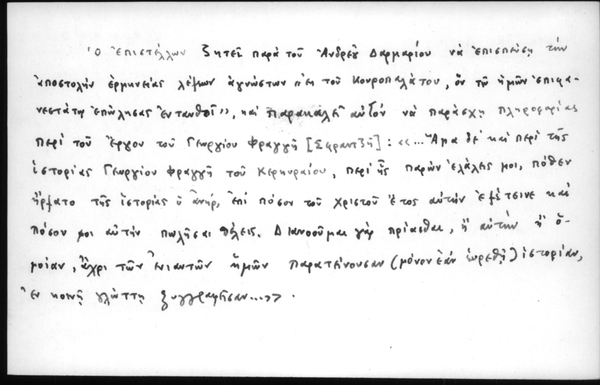 Ὁ ἐπιστέλλων ζητεῖ παρὰ τοῦ Ἀνδρέου Δαρμαρίου νὰ ἐπισπεύσῃ τὴν
ἀποστολὴν ἑρμηνείας λέξεων ἀγνώστων τοῦ Κουροπαλάτου, ὃν τῷ ἡμῶν ἐπιφα-
νεστάτῳ ἐπώλησας ἐνταυθοῖ», καὶ παρακαλεῖ αὐτὸν νὰ παράσχῃ πληροφορίας
περὶ τοῦ ἔργου τοῦ Γεωργίου Φραγγῆ [Σφραντζῆ]: «...Ἅμα δὲ καὶ περὶ τῆς
ἱστορίας Γεωργίου Φραγγῆ τοῦ Κερκυραίου, περὶ ἧς παρὼν ἐλάλεις μοι, πόθεν
ἤρξατο τῆς ἱστορίας ὁ ἀνήρ, ἐπὶ πόσον τοῦ Χριστοῦ ἔτος αὐτὴν ἐξέτεινε καὶ
πόσον μοι αὐτὴν πωλῆσαι θέλεις. Διανοοῦμαι γὰρ πρίασθαι, ἢ αὐτὴν ἢ ὁ-
μοίαν, ἄχρι τῶν ἐνιαυτῶν ἡμῶν παρατείνουσαν (μόνον ἐὰν εὑρεθῇ) ἱστορίαν,
ἐν κοινῇ γλώττῃ ξυγγραφεῖσαν...».